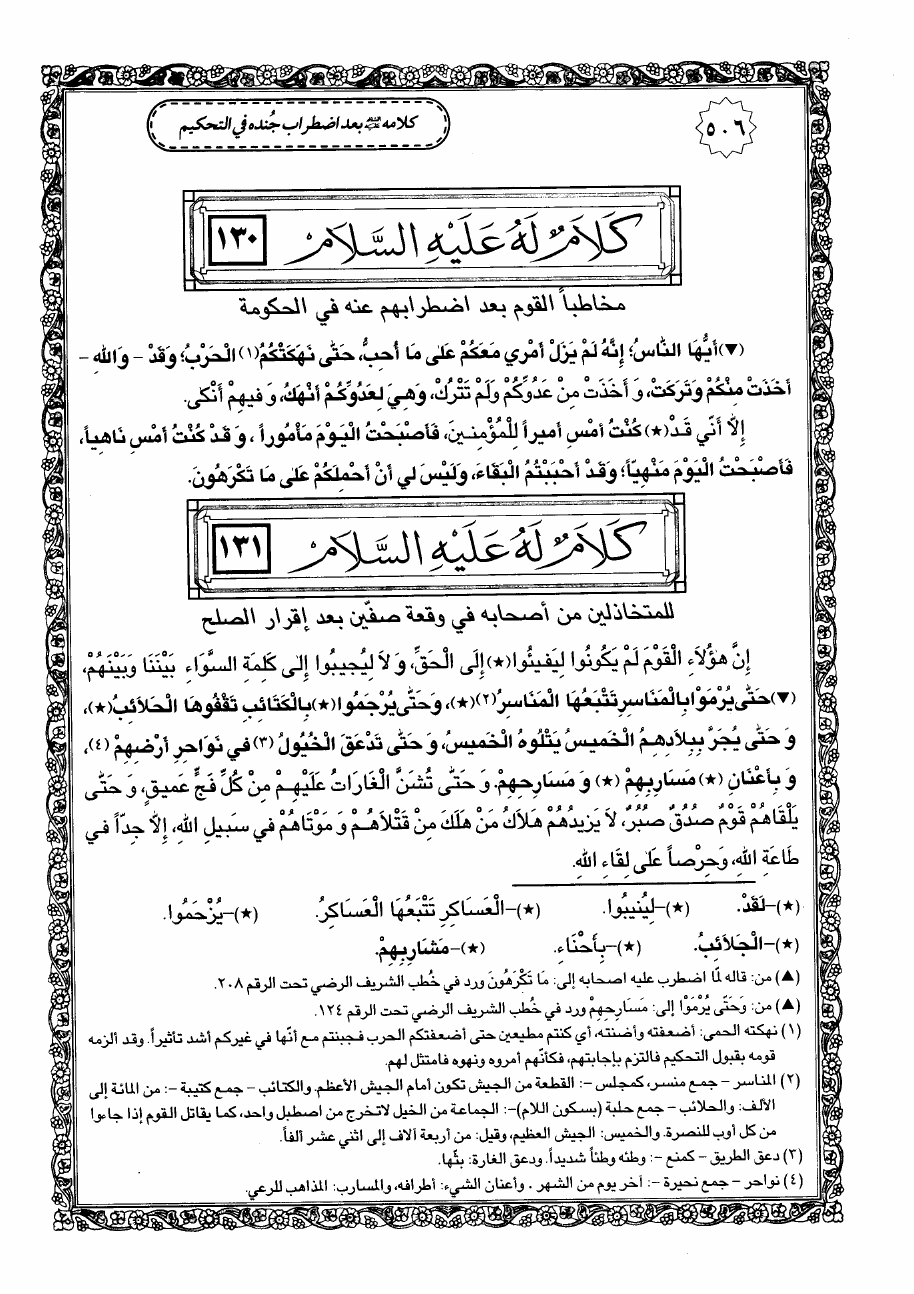 ٥٠٦
كلامه عليه السلام بعد اضطراب جُنده في التحكيم
كَلَامٌ لَهُ عَلَيْهِ السَّلَامُ
١٣٠
مخاطباً القوم بعد اضطرابهم عنه في الحكومة
(▼) أَيُّهَا النَّاسُ؛ إِنَّهُ لَمْ يَزَلْ أَمْري مَعَكُمْ عَلى مَا أُحِبُّ، حَتّى نَهَكَتْكُمُ (١) الْحَرْبُ؛ وَقَدْ – وَاللهِ –
أَخَذَتْ مِنْكُمْ وَتَرَكَتْ، وَ أَخَذَتْ مِنْ عَدُوِّكُمْ وَلَمْ تَتْرُكْ، وَهِيَ لِعَدُوِّكُمْ أَنْهَكُ، وَ فيهِمْ أَنْكى.
إِلاَّ أَنّي قَدْ (★) كُنْتُ أَمْسِ أَميراً لِلْمُؤْمِنينَ، فَأَصْبَحْتُ الْيَوْمَ مَأْمُوراً ، وَ قَدْ كُنْتُ أَمْسِ نَاهِياً،
فَأَصْبَحْتُ الْيَوْمَ مَنْهِيّاً؛ وَقَدْ أَحْبَبْتُمُ الْبَقَاءَ، وَلَيْسَ لي أَنْ أَحْمِلَكُمْ عَلى مَا تَكْرَهُونَ.
كَلَامٌ لَهُ عَلَيْهِ السَّلَامُ
١٣١
للمتخاذلين من أصحابه في وقعة صفّين بعد إقرار الصلح
إِنَّ هؤُلَاءِ الْقَوْمَ لَمْ يَكُونُوا لِيَفيئُوا (★) إِلَى الْحَقِّ، وَ لَا لِيُجيبُوا إِلى كَلِمَةِ السَّوَاءِ بَيْنَنَا وَبَيْنَهُمْ،
(▼) حَتّى يُرْمَوْا بِالْمَنَاسِرِ تَتْبَعُهَا الْمَنَاسِرُ (٢) (★)، وَحَتّى يُرْجَمُوا (★) بِالْكَتَائِبِ تَقْفُوهَا الْحَلَائِبُ (★)،
وَ حَتّى يُجَرَّ بِبِلَادِهِمُ الْخَميسُ يَتْلُوهُ الْخَميسُ، وَ حَتّى تَدْعَقَ الْخُيُولُ (٣) في نَوَاحِرِ أَرْضِهِمْ (٤)،
وَ بِأَعْنَانِ (★) مَسَارِبِهِمْ (★) وَ مَسَارِحِهِمْ. وَ حَتّى تُشَنَّ الْغَارَاتُ عَلَيْهِمْ مِنْ كُلِّ فَجٍّ عَميقٍ، وَ حَتّى
يَلْقَاهُمْ قَوْمٌ صُدُقٌ صُبُرٌ، لَا يَزيدُهُمْ هَلَاكُ مَنْ هَلَكَ مِنْ قَتْلَاهُمْ وَ مَوْتَاهُمْ في سَبيلِ اللهِ، إِلاَّ جِدّاً في
طَاعَةِ اللهِ، وَحِرْصاً عَلى لِقَاءِ اللهِ.
(★)–لَقَدْ. (★)–لِيُنيبُوا. (★)–الْعَسَاكِرِ تَتْبَعُهَا الْعَسَاكِرُ. (★)–يُزْحَمُوا.
(★)–الْجَلَائِبُ. (★)–بِأَحْنَاءِ. (★)–مَشَارِبِهِمْ.
(▲) من: قاله لمّا اضطرب عليه اصحابه إلى: مَا تَكْرَهُونَ ورد في خُطب الشريف الرضي تحت الرقم ٢٠٨.
(▲) من: وَحَتّى يُرْمَوْا إلى: مَسَارِحِهِمْ ورد في خُطب الشريف الرضي تحت الرقم ١٢٤.
(١) نهكته الحمى: أضعفته وأضنته، أي كنتم مطيعين حتى أضعفتكم الحرب فجبنتم مع أنّها في غيركم أشد تأثيراً. وقد ألزمه
قومه بقبول التحكيم فالتزم بإجابتهم، فكأنّهم أمروه ونهوه فامتثل لهم.
(٢) المناسر – جمع منسر، كمجلس –: القطعة من الجيش تكون أمام الجيش الأعظم. والكتائب – جمع كتيبة –: من المائة إلى
الألف: والحلائب – جمع حلبة (بسكون اللام)–: الجماعة من الخيل لا تخرج من اصطبل واحد، كما يقاتل القوم إذا جاءوا
من كل أوب للنصرة. والخميس: الجيش العظيم، وقيل: من أربعة آلاف إلى اثني عشر ألفاً.
(٣) دعق الطريق – كمنع –: وطئه وطئاً شديداً. ودعق الغارة: بثّها.
(٤) نواحر – جمع نحيرة –: آخر يوم من الشهر . وأعنان الشيء: أطرافه، والمسارب: المذاهب للرعي.